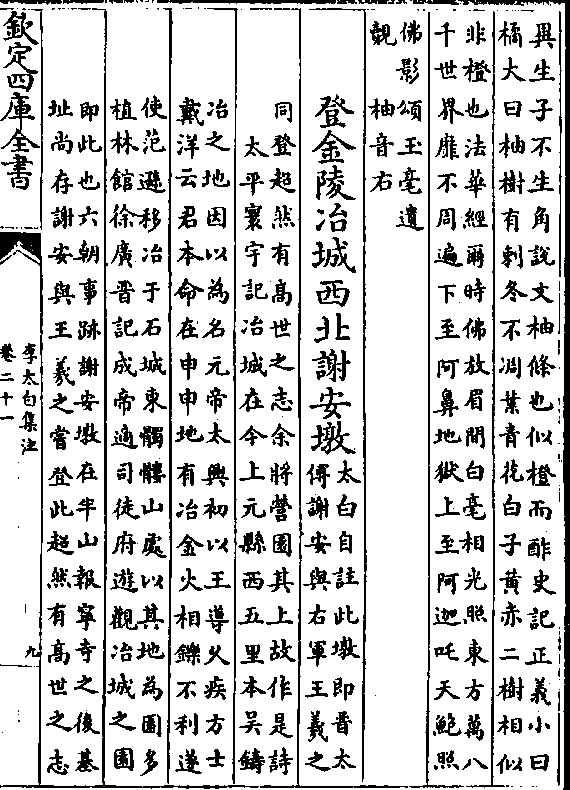 異生子不生角說文柚條也似橙而酢史記正義小曰
橘大曰柚樹有刺冬不凋葉青花白子黃赤二樹相似
非橙也法華經爾時佛放眉間白毫相光照東方萬八
千世界靡不周遍下至阿鼻地獄上至阿迦吒天鮑照
佛影頌玉毫遺
覿柚音右
登金陵冶城西北謝安墩
太白自註此墩即晉太
傅謝安與右軍王羲之
同登超然有高世之志余將營園其上故作是詩
太平寰宇記冶城在今上元縣西五里本吳鑄
冶之地因以為名元帝太興初以王導久疾方士
戴洋云君本命在申申地有冶金火相鑠不利遂
使范遜移冶于石城東髑髏山處以其地為園多
植林館徐廣晉記成帝適司徒府遊觀冶城之園
即此也六朝事跡謝安墩在半山報寧寺之後基
址尚存謝安與王羲之嘗登此超然有高世之志
欽定四庫全書
李太白集注
卷二十一
九